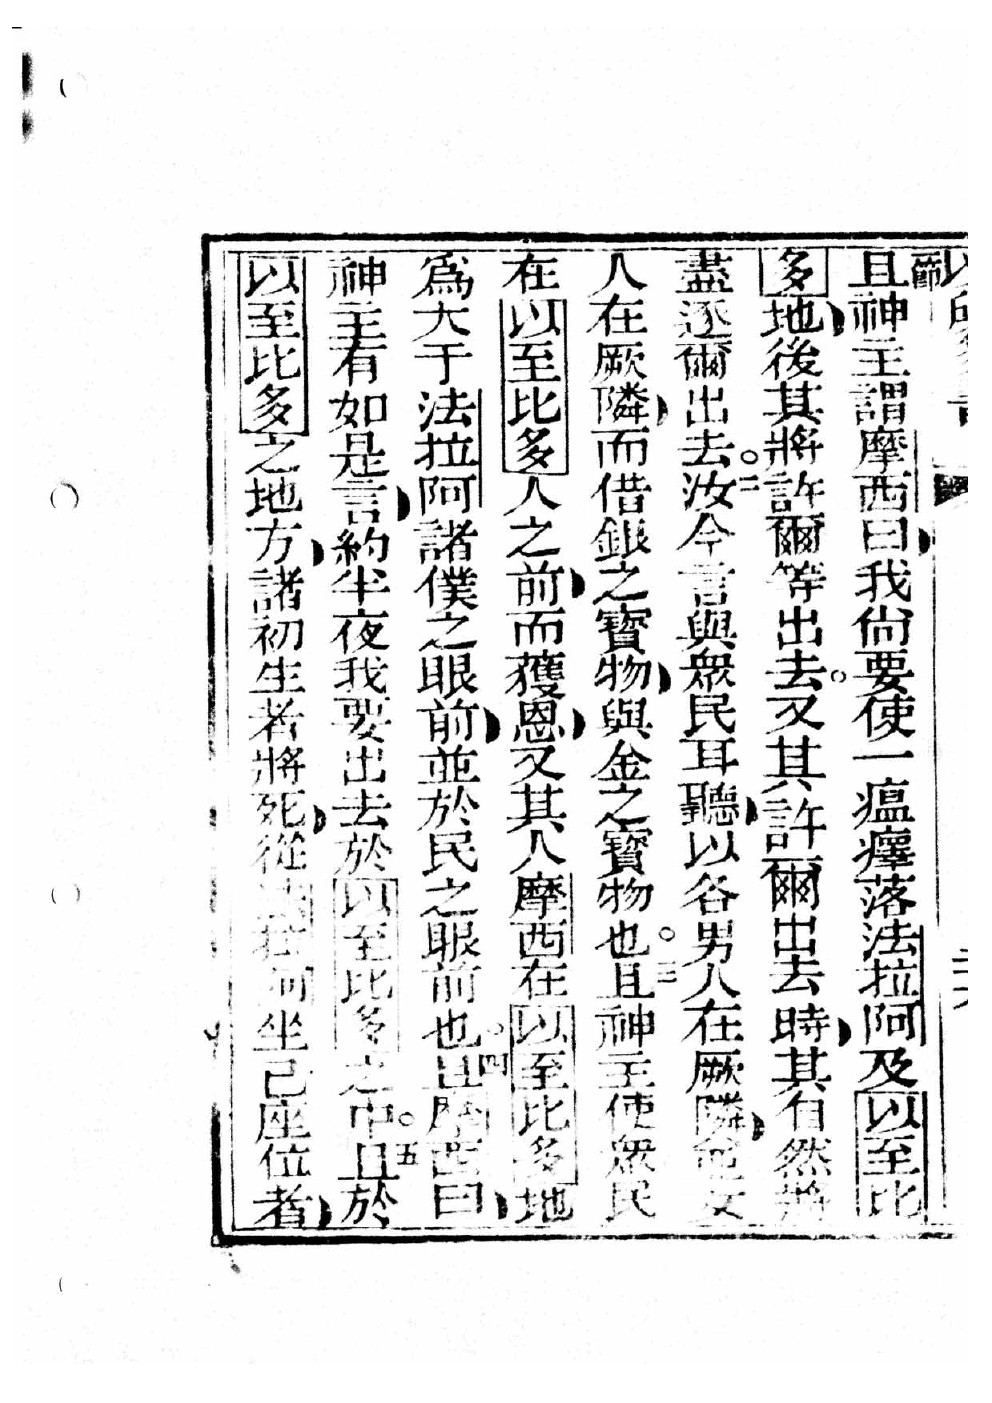 節
且神主謂摩西曰我尙要使一瘟癉落法拉阿及以至比
多地後其將許爾等出去又其許爾出去時其自然將
盡逐爾出去二汝今言與衆民耳聽以各男人在厥隣並女
人在厥隣而借銀之寳物與金之寳物也三且神主使衆民
在以至比多人之前而獲恩又其人摩西在以至比多地
爲大于法拉阿諸僕之眼前並於民之眼前也四且摩西曰
神主有如是言約半夜我要出去於以至比多之中五且於
以至比多之地方諸初生者將死從法拉阿坐己座位者